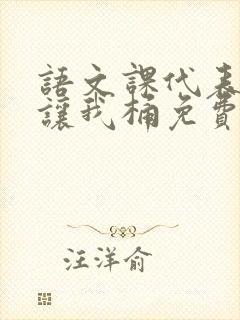 語文課代表
讓我桶免費
汪洋俞